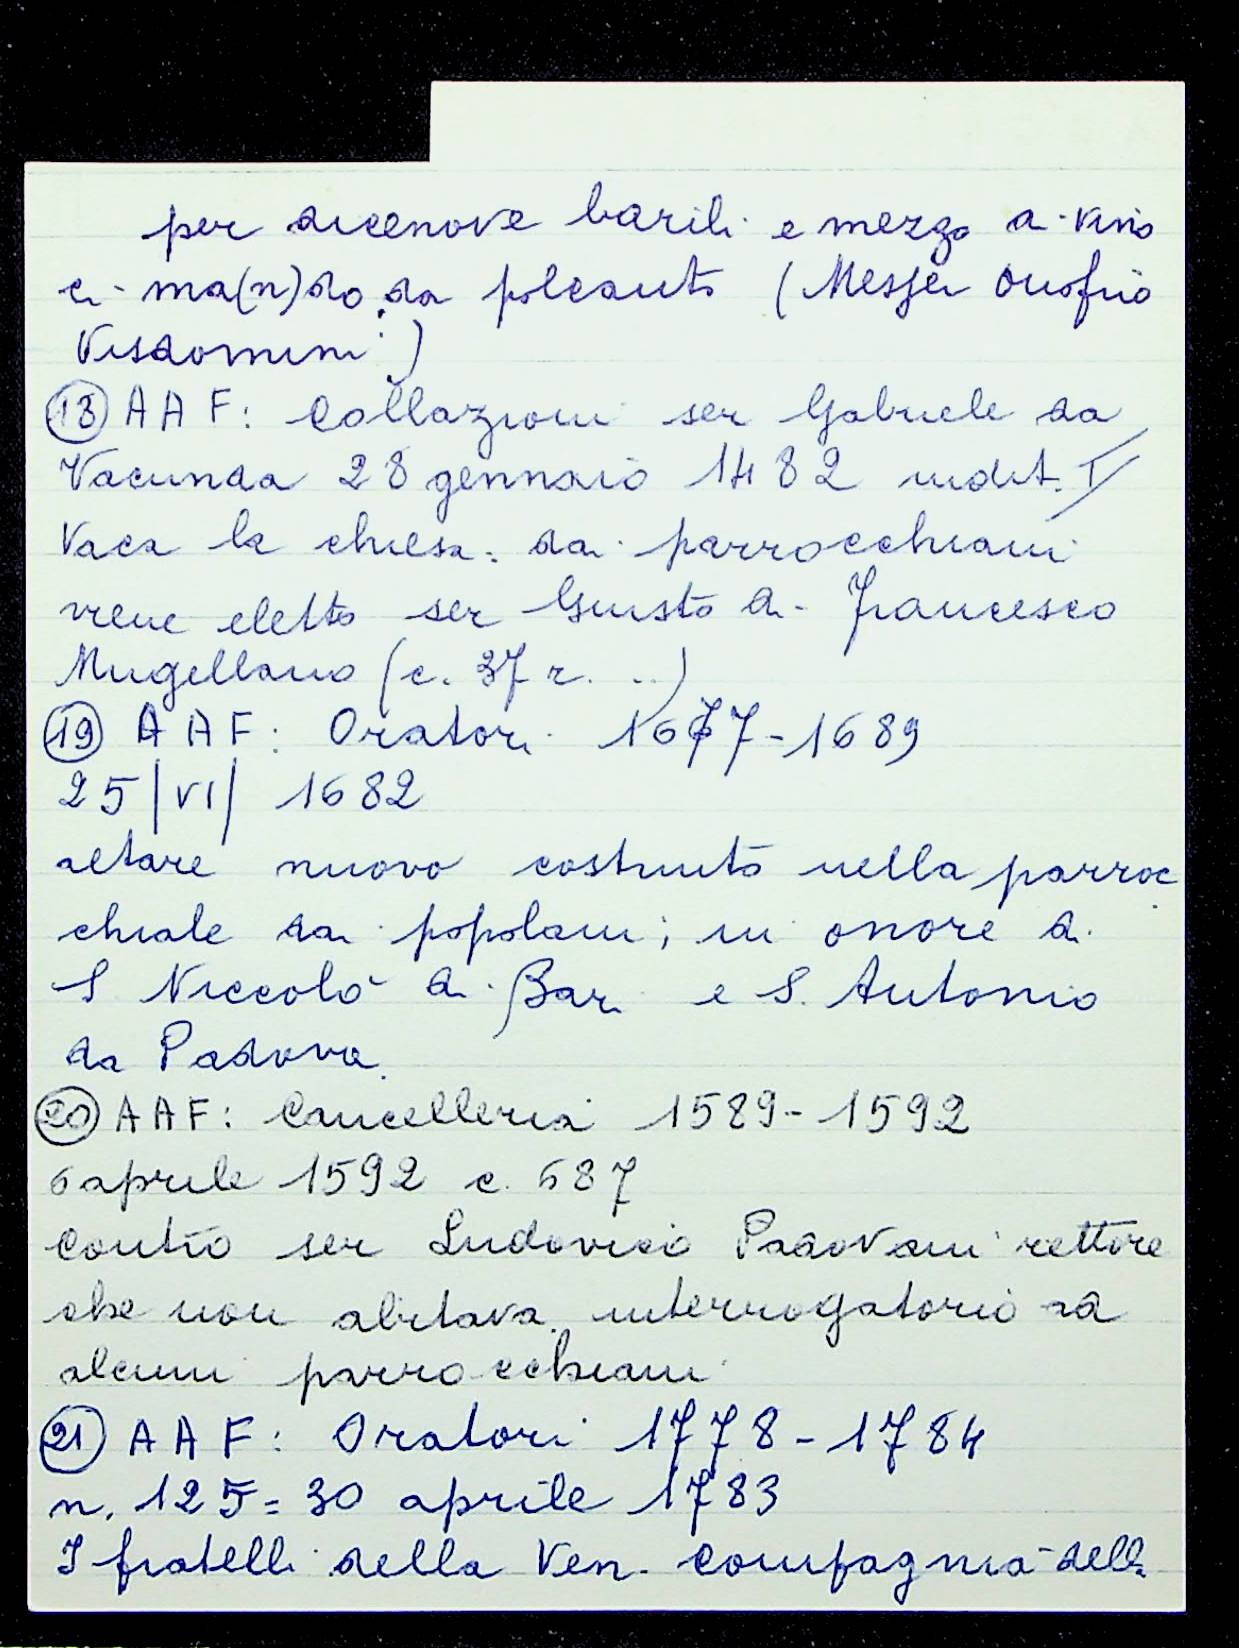 per dicenove barili e mezzo di vino
ci ma(n)dò da polcanto (Messer Onofrio
Visdomini)
18 AAF: Collazioni ser Gabriele da
Vacunda 28 gennaio 1482 indit. I/
Vaca la chiesa: dai parrocchiani
viene eletto ser Giusto di Francesco
Mugellano (c. 37 r. ..)
19 AAF: Oratori 1677-1689
25/VI/ 1682
altare nuovo costruito nella parroc
chiale dai popolani; in onore di
S Niccolò di Bari e S. Antonio
da Padova.
20 AAF: Cancelleria 1589-1592
6 aprile 1592 c. 687
Contro ser Ludovico Padovani rettore
che non abitava. interrogatorio da
alcuni parrocchiani
21 AAF: Oratori 1778-1784
n. 125= 30 aprile 1783
I fratelli della Ven. Compagnia dell